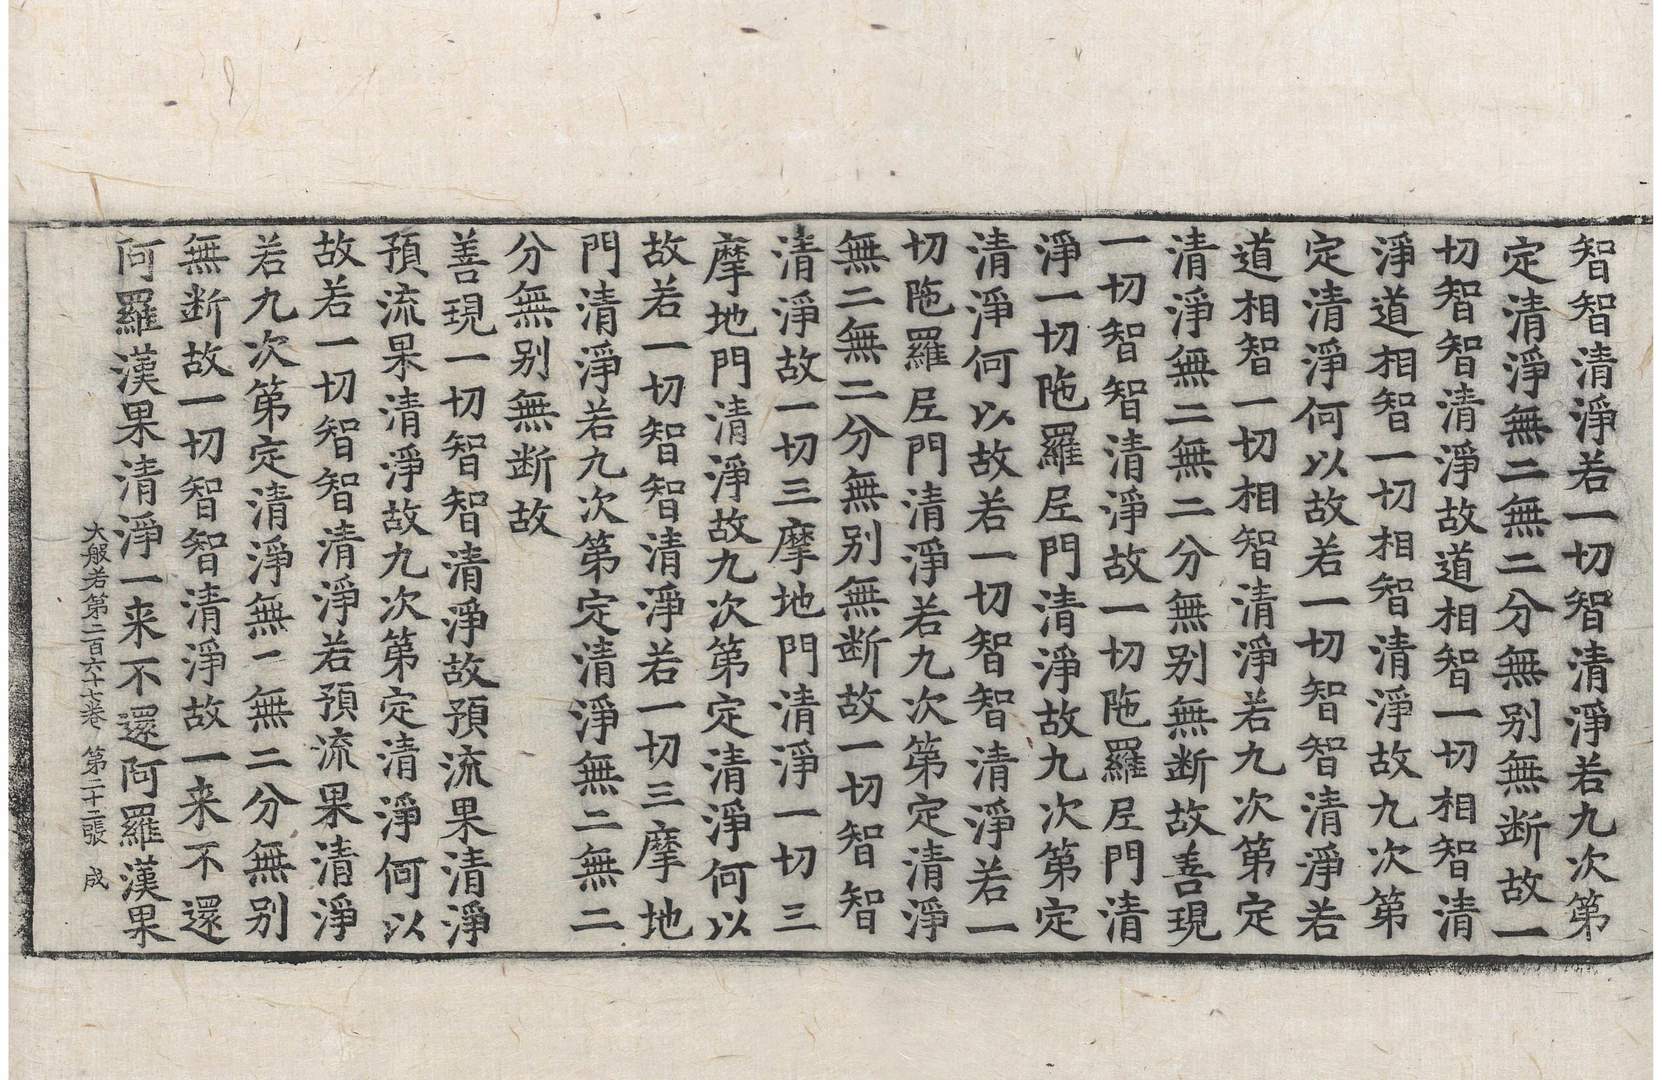 智智清淨若一切智智清淨若九次第
定清淨無二無二分無别無断故一
切智智清淨故道相智一切相智清
淨道相智一切相智清淨故九次第
定清淨何以故若一切智智清淨若
道相智一切相智清淨若九次第定
清淨無二無二分無别無断故善現
一切智智清淨故一切陁羅尼門清
淨一切陁羅尼門清淨故九次第定
清淨何以故若一切智智清淨若一
切陁羅尼門清淨若九次第定清淨
無二無二分無别無断故一切智智
清淨故一切三摩地門清淨一切三
摩地門清淨故九次第定清淨何以
故若一切智智清淨若一切三摩地
門清淨若九次第定清淨無二無二
分無别無断故
善現一切智智清淨故預流果清淨
預流果清淨故九次第定清淨何以
故若一切智智清淨若預流果清淨
若九次第定清淨無二無二分無别
無断故一切智智清淨故一来不還
阿羅漢果清淨一来不還阿羅漢果
大般若第二百六十七卷 第二十二張 成